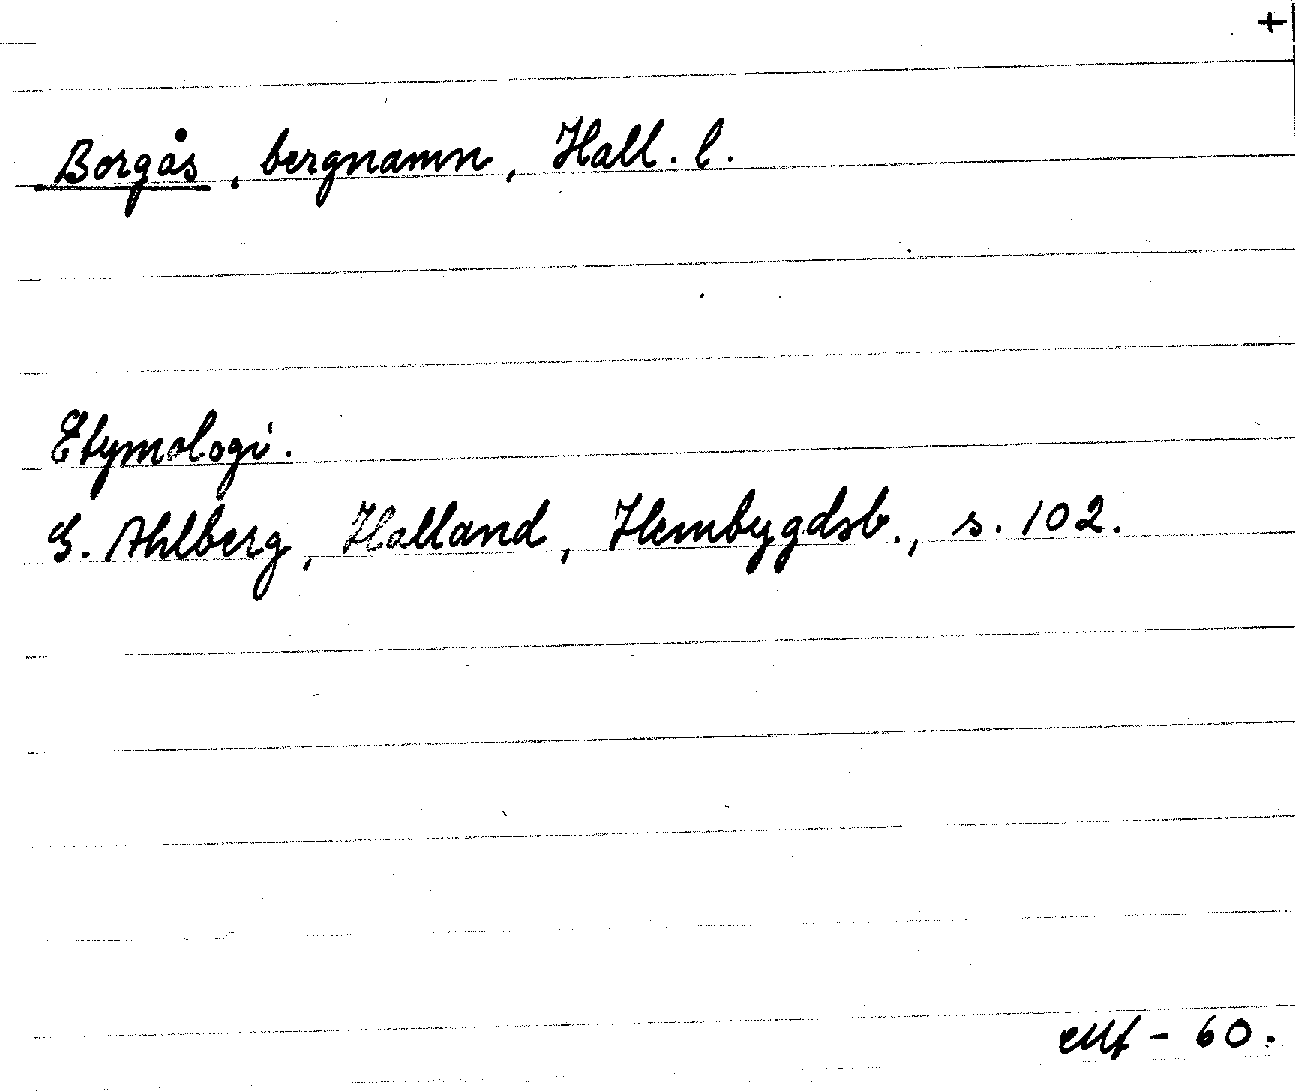 +
Borgås, bergnamn, Hall. l.
Etymologi.
S. Ahlberg, Halland, Hembygdsb., s. 102.
- 60.